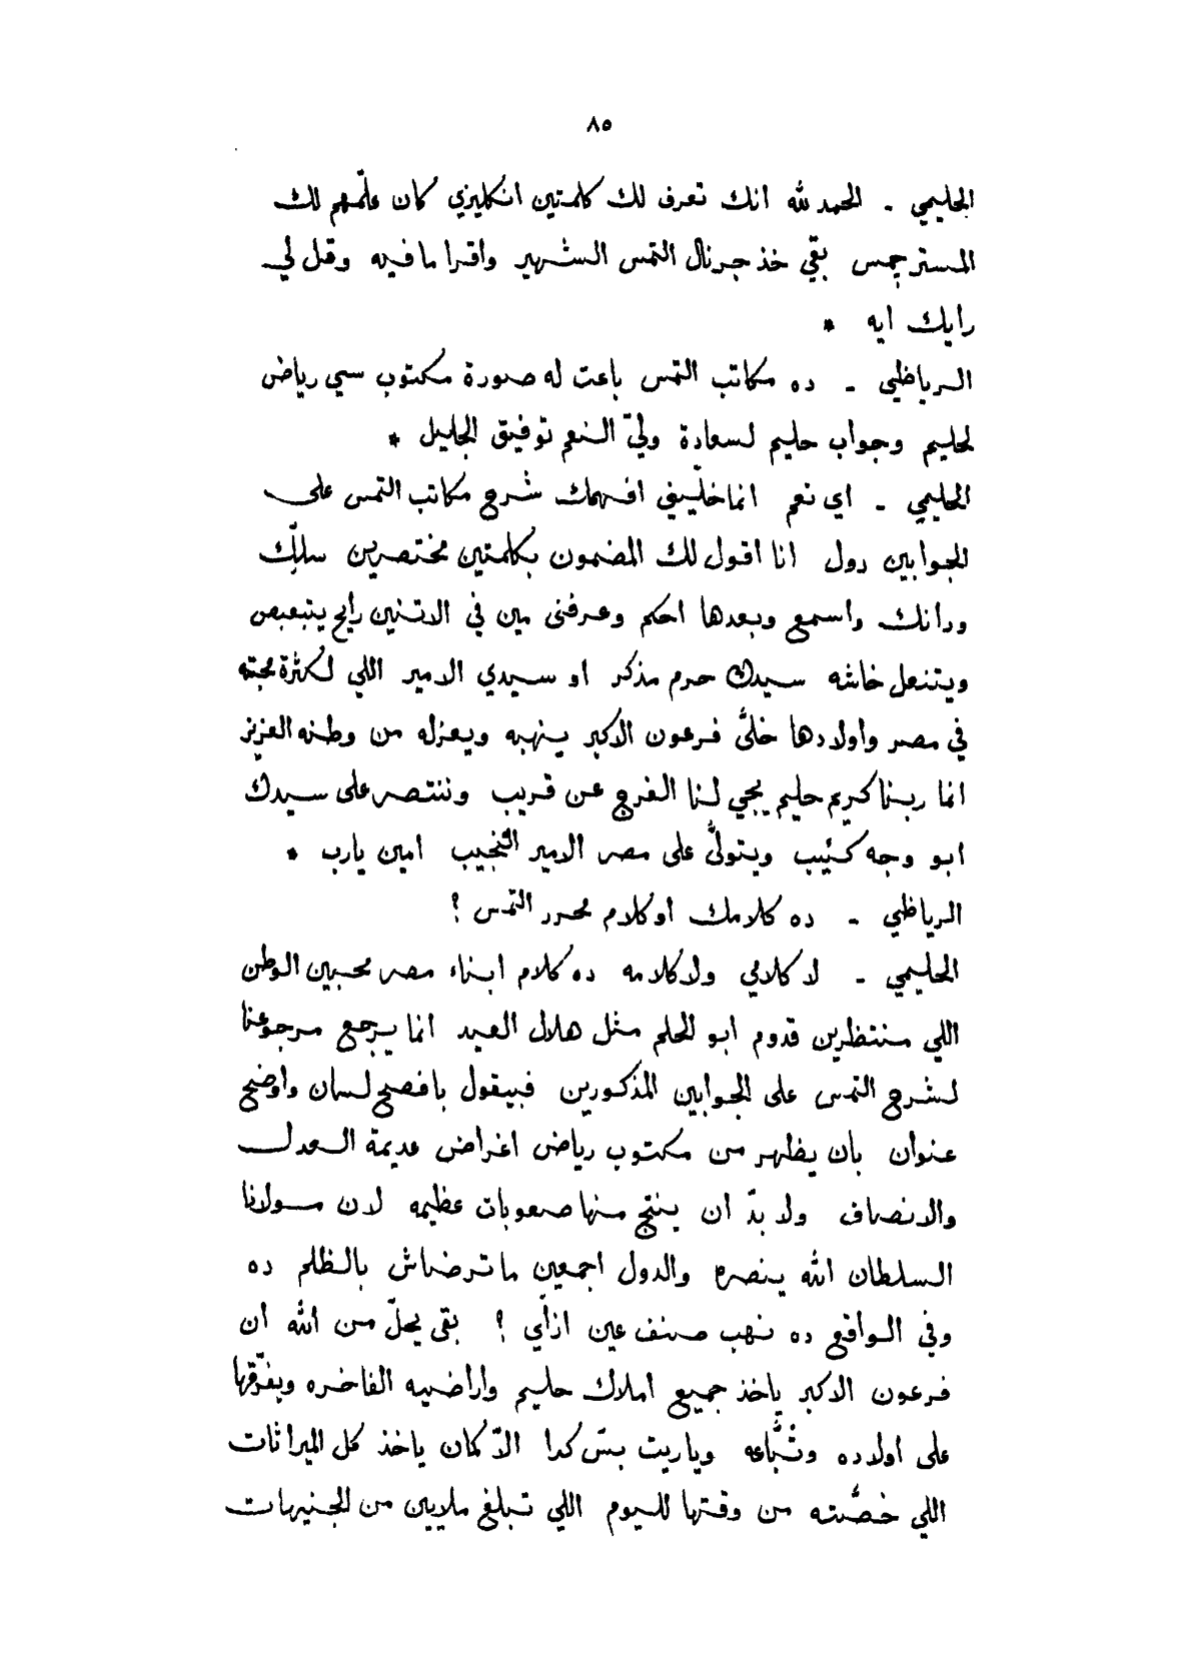 ٨٥
الحليمي - الحمد لله انك تعرف لك كلمتين انكليزي كان علّمهم لك
المستر جمس بقي خذ جرنال التمس الشهير واقرا ما فيه وقل لي
رايك ايه *
الرياظلي - ده مكاتب التمس باعت له صورة مكتوب سي رياض
لحليم وجواب حليم لسعادة وليّ النعم توفيق الجليل *
الحليمي - اي نعم انما خلّيني افهمك شرح مكاتب التمس على
الجوابين دول انا اقول لك المضمون بكلمتين مختصرين سلّك
ودانك واسمع وبعدها احكم وعرفنى مين في الاتنين رايح يتبعبص
ويتنعل خاشه سيدك حرم مذكر او سيدي الامير اللي لكثرة محبته
في مصر واولادها خلىّ فرعون الاكبر ينهبه ويعزله من وطنه العزيز
انما ربنا كريم حليم يجي لنا الفرج عن قريب وننتصر على سيدك
ابو وجه كئيب ويتولىّ على مصر الامير النجيب امين يارب *
الرياظلي - ده كلامك او كلام محرر التمس ؟
الحليمي - لا كلامي ولا كلامه ده كلام ابناء مصر محبين الوطن
اللي منتظرين قدوم ابو الحلم مثل هلال العيد انما يرجع مرجوعنا
لشرح التمس على الجوابين المذكورين فبيقول بافصح لسان واوضح
عنوان بان يظهر من مكتوب رياض اغراض عديمة العدل
والانصاف ولا بدّ ان ينتج منها صعوبات عظيمه لان مولانا
السلطان الله ينصره والدول اجمعين ما ترضاش بالظلم ده
وفي الواقع ده نهب صنف عين ازأي ؟ بقى يحلّ من الله ان
فرعون الاكبر ياخذ جميع املاك حليم واراضيه الفاخره ويفرّقها
على اولاده وتبّاعه وياريت بسّ كدا الاّ كمان ياخذ كل الميراثات
اللي خصّته من وقتها لليوم اللي تبلغ ملايين من الجنيهات